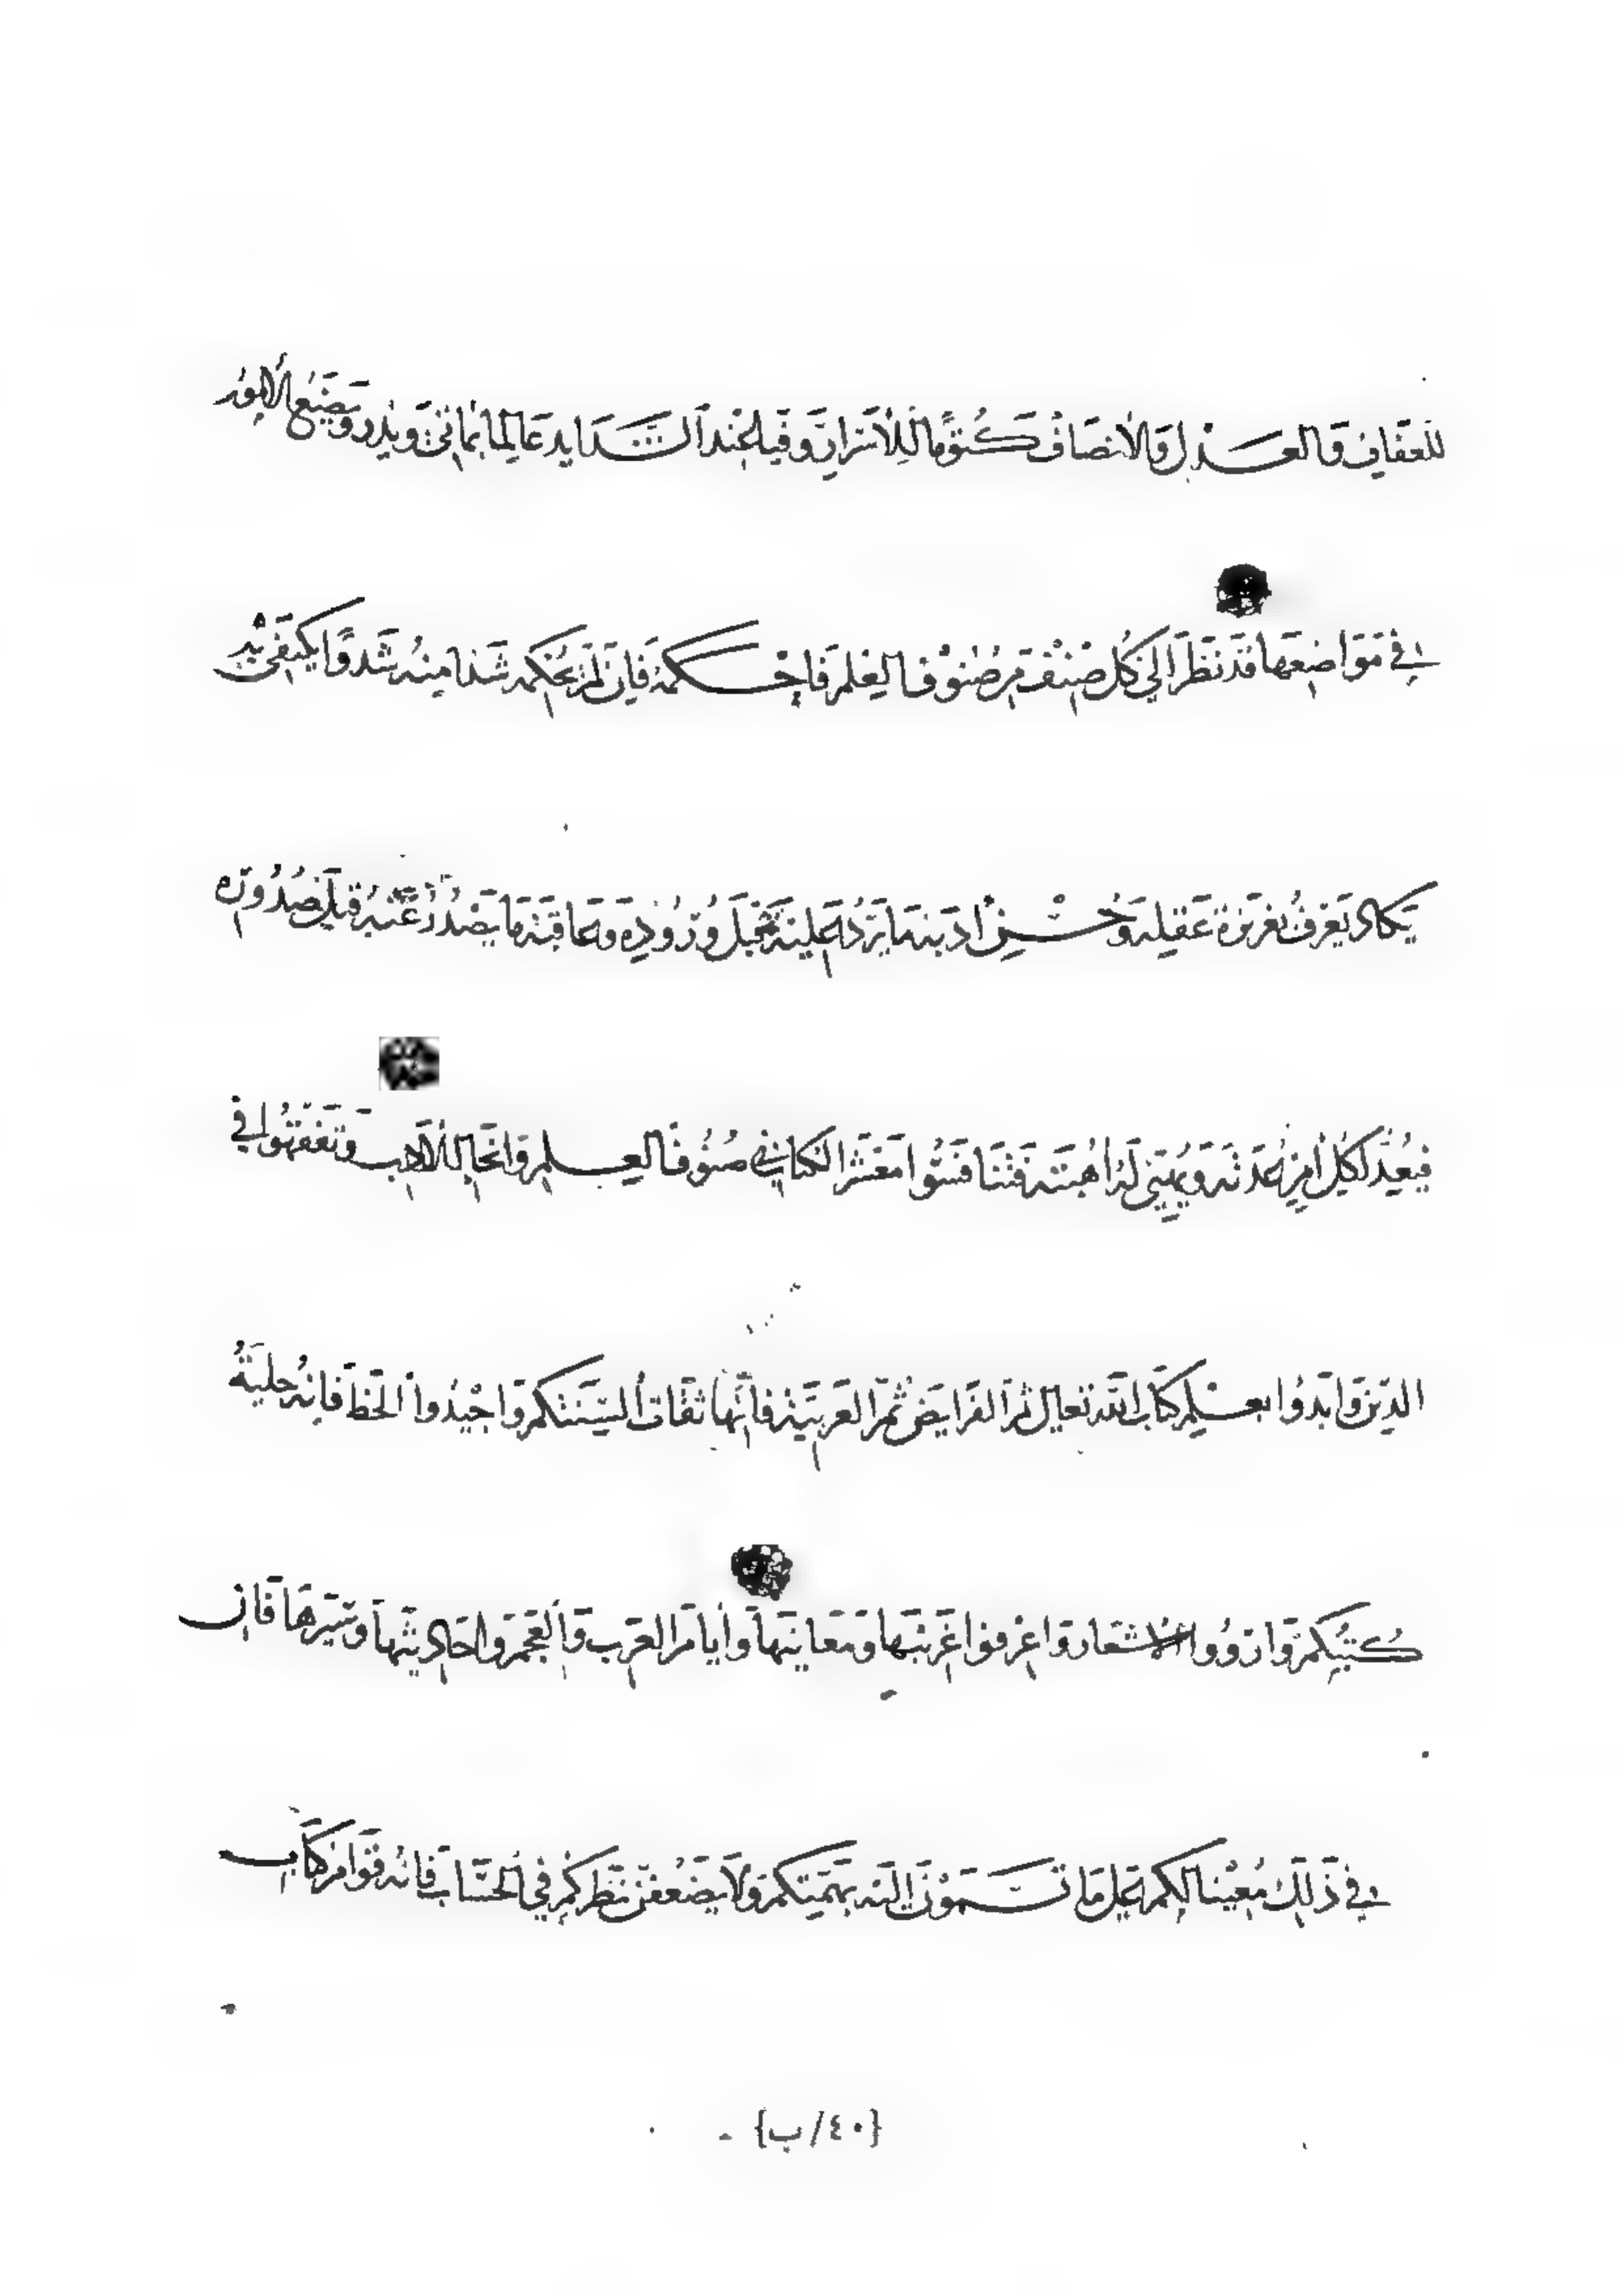 للعفاف والعدل والانصاف كتوما للاسرار وفيا عند الشدايد عالما بما ياتي ويذر ويضع الامور
في مواضعها قد نظر الى كل صنف من صنوف العلم فاحكمه فان لم يحكمه شدا منه شدوا يكتفي به
يكاد يعرف بغريزة عقله وحسن ادبه ما يرد عليه قبل وروده وعاقبة ما يصدر عنه قبل صدوره
فيعد لكل امر عدته ويهيئ له اهبته فتنافسوا معشر الكتاب في صنوف العلم والاداب وتفقهوا في
الدين وابدوا بعلم كتاب الله تعالى ثم الفرايض ثم العربية فانها ثقاف السنتكم واجيدوا الخط فانه حلية
كتبكم وارووا الاشعار واعرفوا غريبها ومعانيها وايام العرب والعجم واحاديثها وسيرها فان
في ذلك معينا لكم على ما تسمون اليه بهممكم ولا يضعفن نظركم في الحساب فانه قوام كتاب
{٤٠/ب}